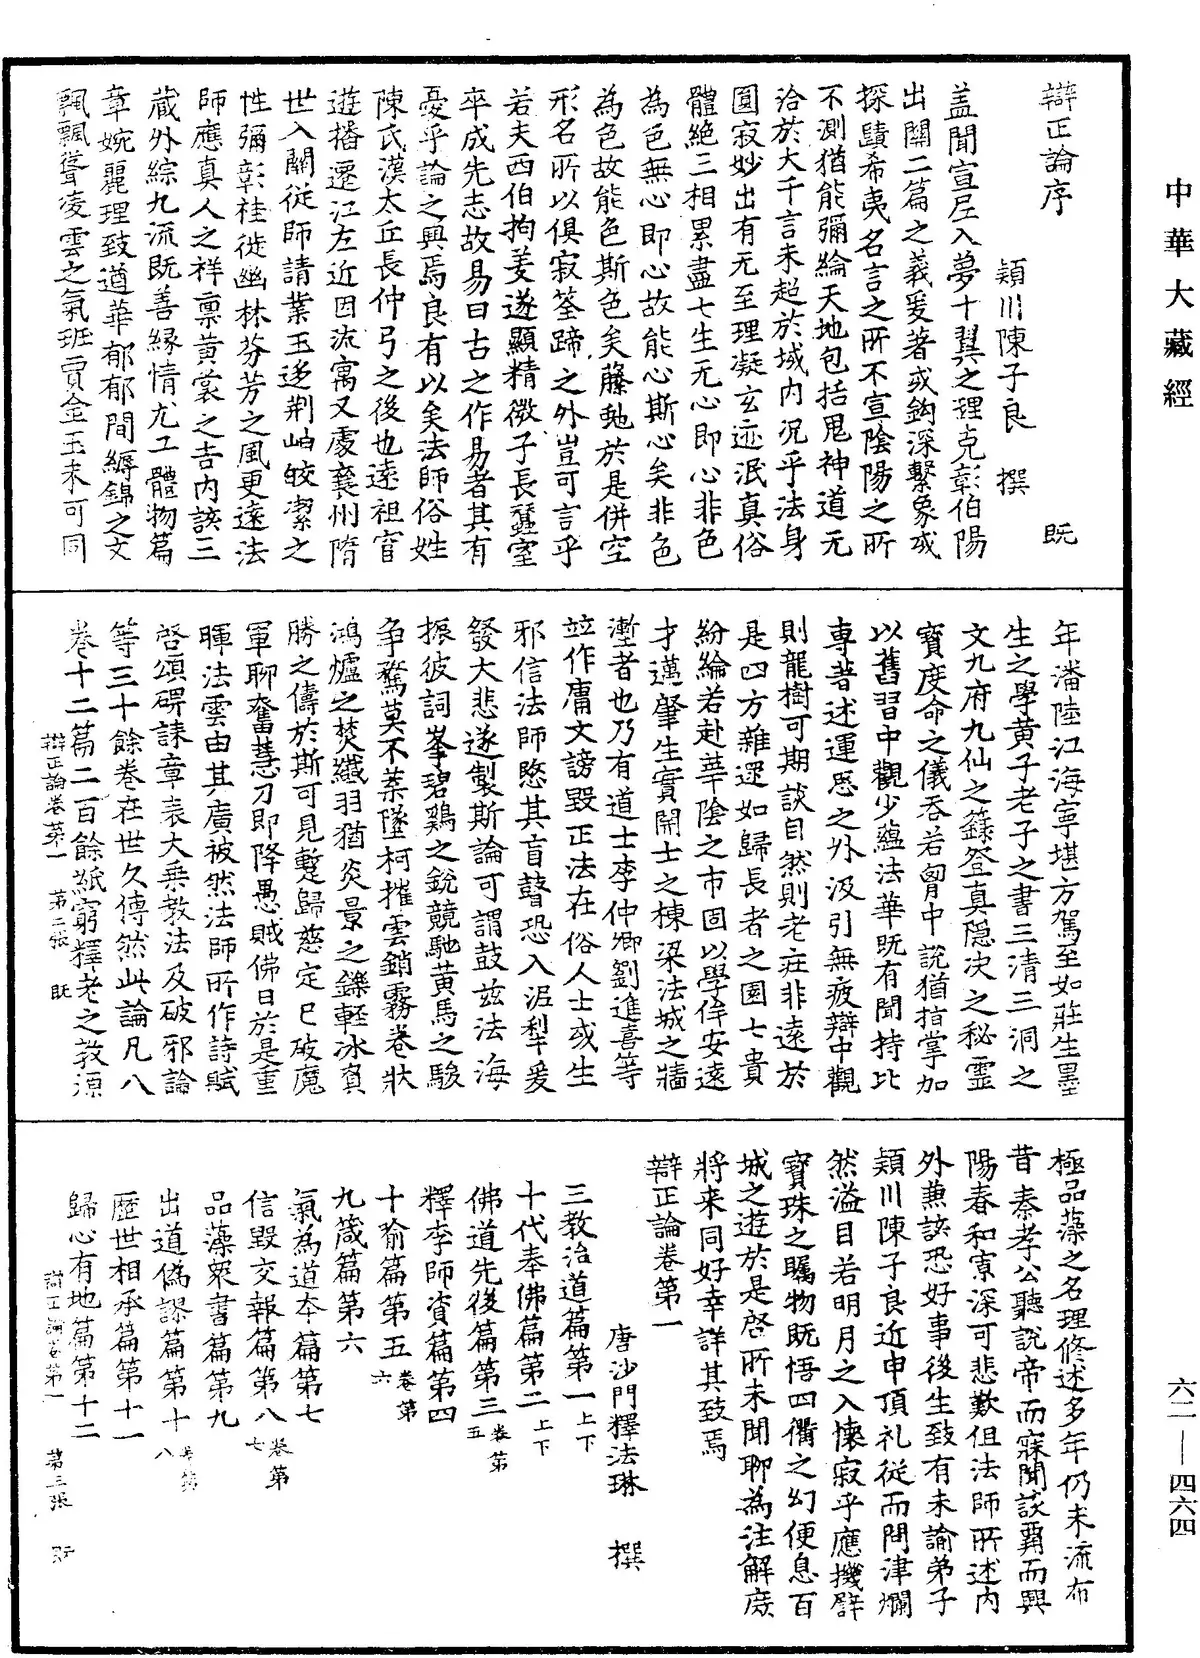 中華大藏經
辯正論序
穎川陳子良 撰 既
盖聞宣尼入夢十翼之理克彰伯陽
出關二篇之義爰著或鈎深繫象或
探賾希夷名言之所不宣陰陽之所
不測猶能彌綸天地包括鬼神道无
洽於大千言未超於域内况乎法身
圓寂妙出有无至理凝玄迹泯真俗
體絶三相累盡七生无心即心非色
為色無心即心故能心斯心矣非色
為色故能色斯色矣藤虵於是併空
形名所以俱寂筌蹄之外豈可言乎
若夫西伯拘羑遂顯精微子長蠶室
卒成先志故易曰古之作易者其有
憂乎論之興焉良有以矣法師俗姓
陳氏漢太丘長仲弓之後也遠祖宦
遊播遷江左近因流寓又處襄州隋
世入關從師請業玉迻荆岫皎潔之
性彌彰桂徙幽林芬芳之風更遠法
師應真人之祥禀黄裳之吉内該三
藏外綜九流既善緣情尤工體物篇
章婉麗理致遒華郁郁間縟錦之文
飄飄聳凌雲之氣班賈金玉未可同
年潘陸江海寧堪方駕至如莊生墨
生之學黄子老子之書三清三洞之
文九府九仙之籙登真隱決之秘靈
寶度命之儀吞若胷中說猶指掌加
以舊習中觀少蘊法華既有聞持比
專著述運思之外汲引無疲辯中觀
則龍樹可期談自然則老莊非遠於
是四方雜遝如歸長者之園七貴
紛綸若赴華陰之市固以學侔安遠
才邁肇生實開士之棟梁法城之牆
壍者也乃有道士李仲卿劉進喜等
竝作庸文謗毀正法在俗人士或生
邪信法師愍其盲瞽恐入泥犁爰
發大悲遂製斯論可謂鼓兹法海
振彼詞峯碧鷄之銳競馳黄馬之駿
争騖莫不葉墜柯摧雲銷霧卷狀
鴻爐之焚纖羽猶炎景之鑠輕冰資
勝之儔於斯可見蹔歸慈定已破魔
軍聊奮慧刀即降愚賊佛日於是重
暉法雲由其廣被然法師所作詩賦
啓頌碑誄章表大乘教法及破邪論
等三十餘卷在世久傳然此論凡八
卷十二篇二百餘紙窮釋老之教源
辯正論卷第一 第二張 既
極品藻之名理修述多年仍未流布
昔秦孝公聽說帝而寐聞談覇而興
陽春和寡深可悲歎但法師所述内
外兼該恐好事後生致有未諭弟子
穎川陳子良近申頂礼從而問津爛
然溢目若明月之入懷寂乎應機譬
寶珠之矚物既悟四衢之幻便息百
城之遊於是啓所未聞聊為注解庶
將来同好幸詳其致焉
辯正論卷第一
唐沙門釋法琳 撰
三教治道篇第一上下
十代奉佛篇第二上下
佛道先後篇第三卷第五
釋李師資篇第四
十喻篇第五卷第六
九箴篇第六
氣為道夲篇第七
信毀交報篇第八卷第七
品藻衆書篇第九
出道偽謬篇第十卷第八
歷世相承篇第十一
歸心有地篇第十二
辯正論卷第一 第三張
六二—四六四